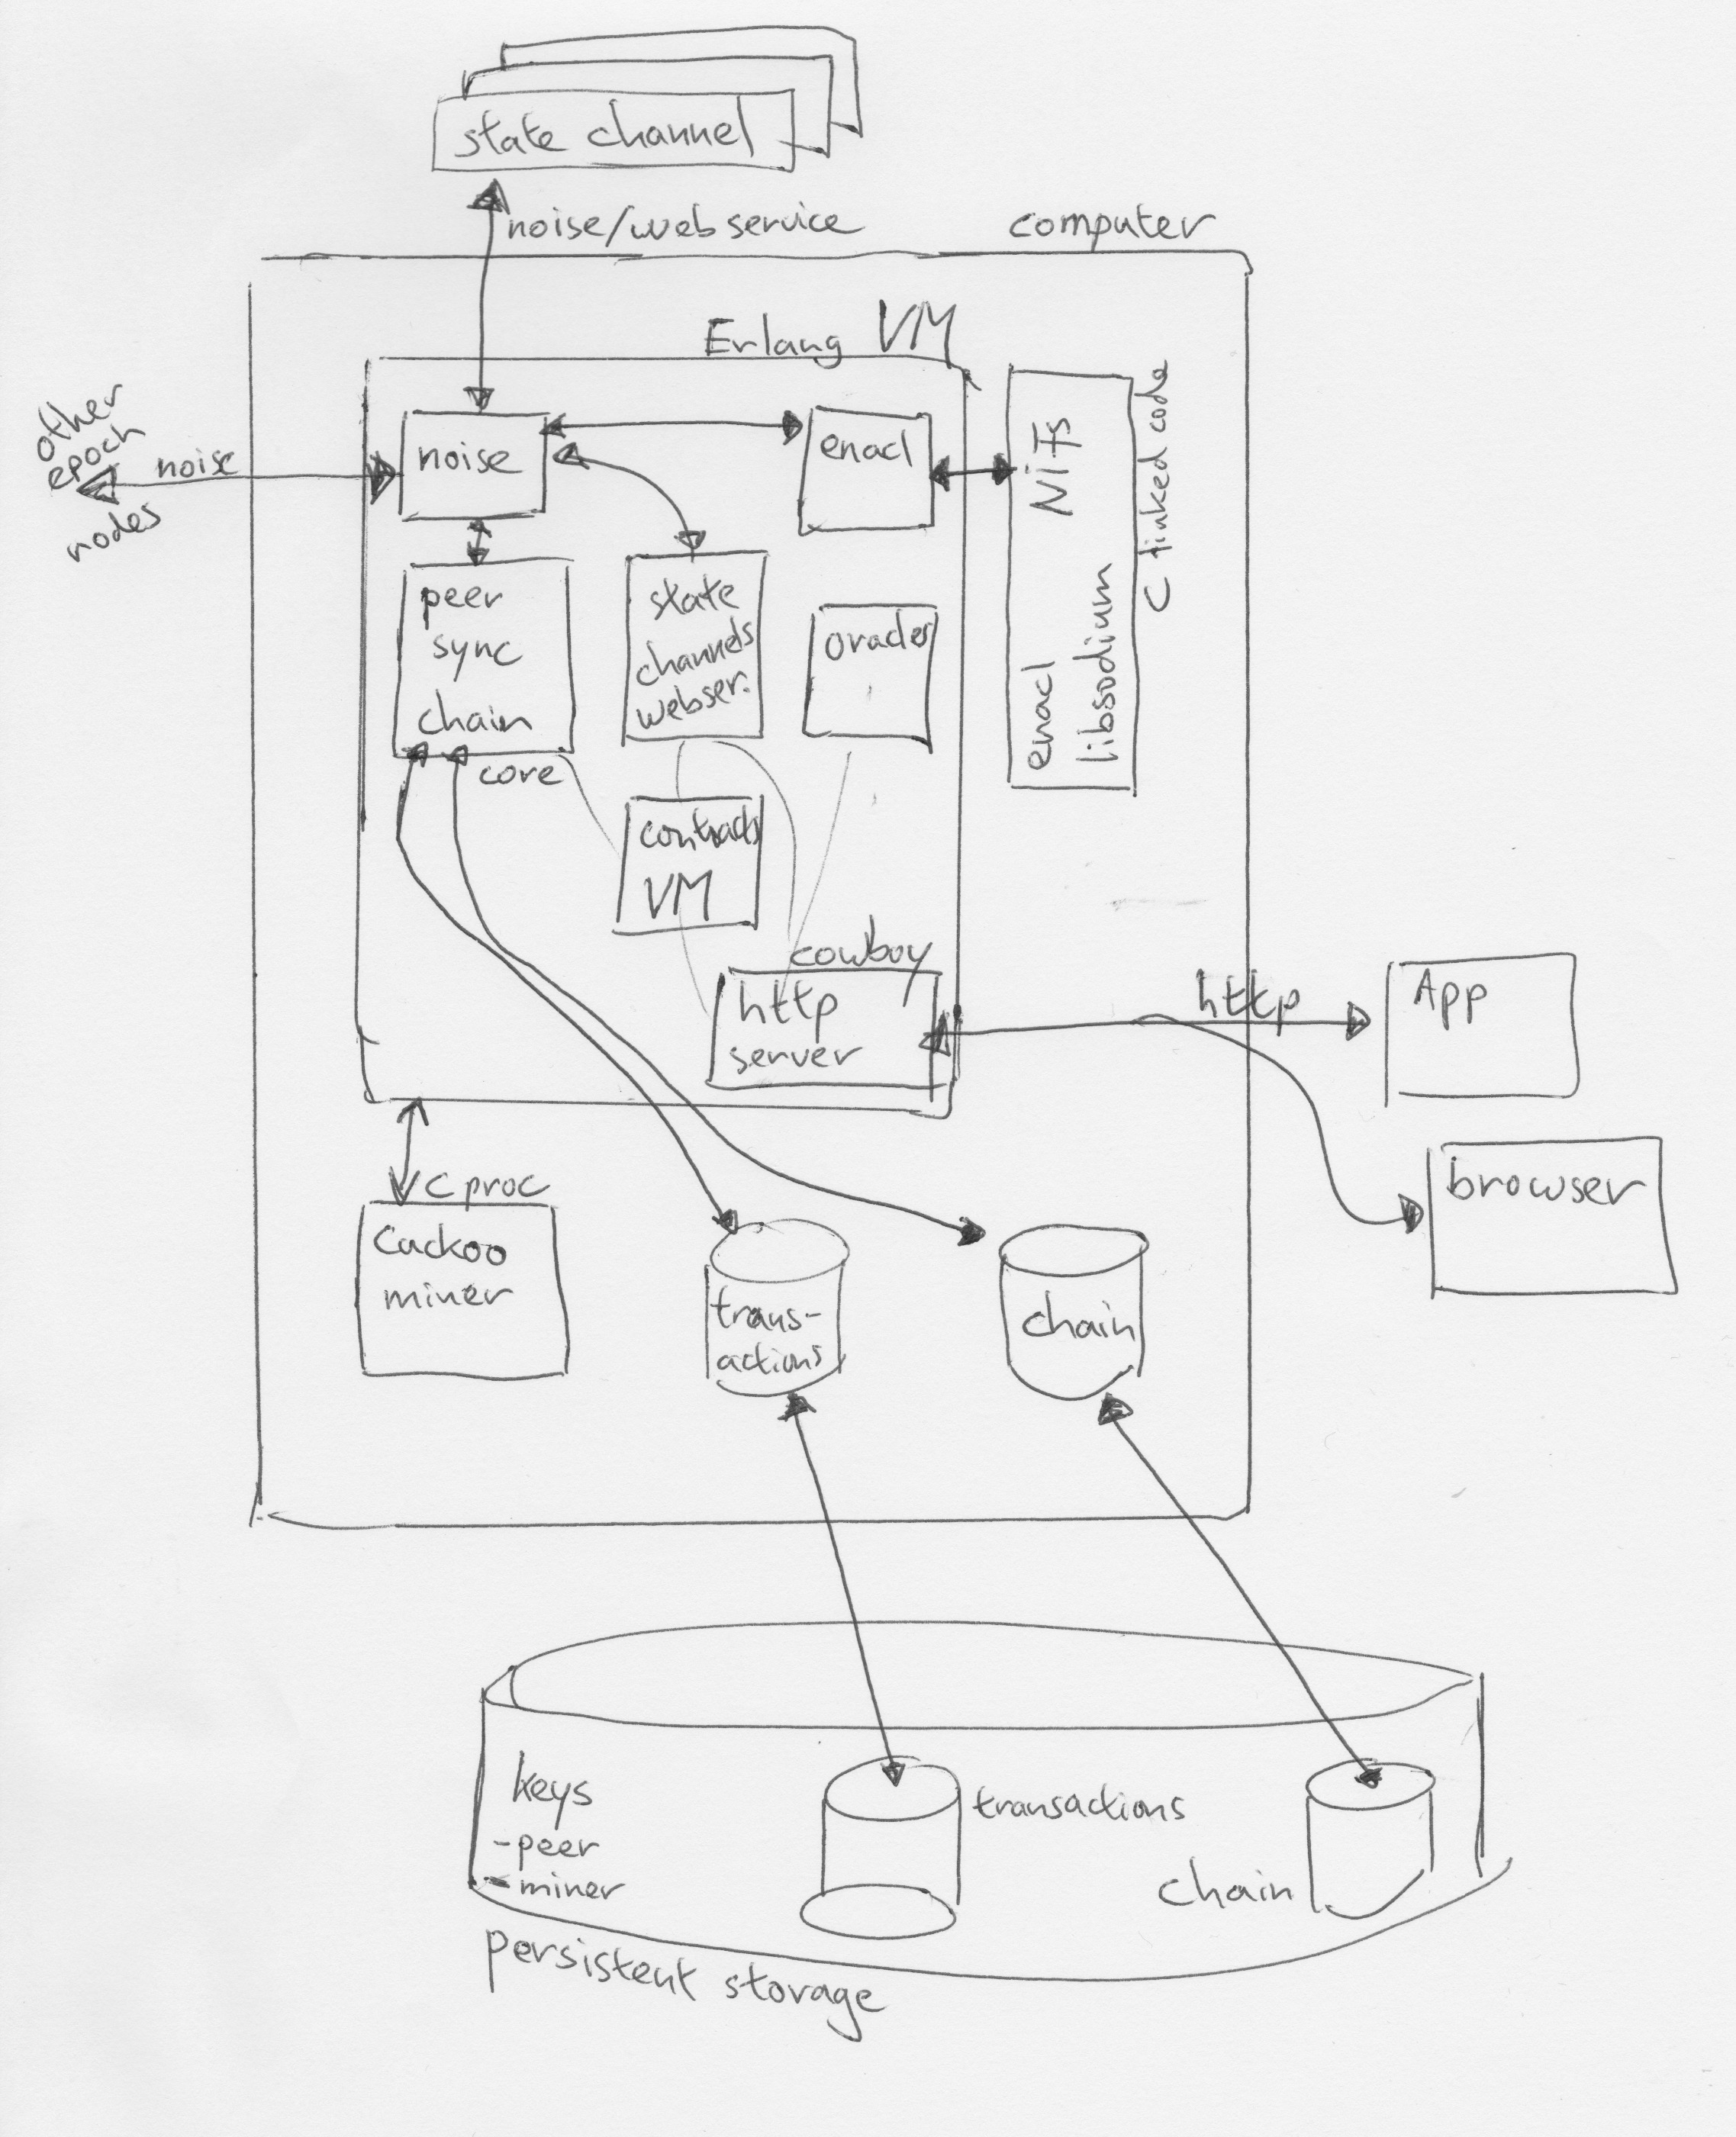 state channel
noise/web service
computer
Erlang VM
other
epoch
nodes
noise
noise
enacl
NiFs
enacl
libsodium
C linked code
peer
sync
chain
core
state
channels
webser.
oracles
contracts
VM
cowboy
http
server
http
App
browser
C proc
Cackoo
miner
trans-
actions
chain
keys
-peer
-miner
transactions
chain
persistent storage